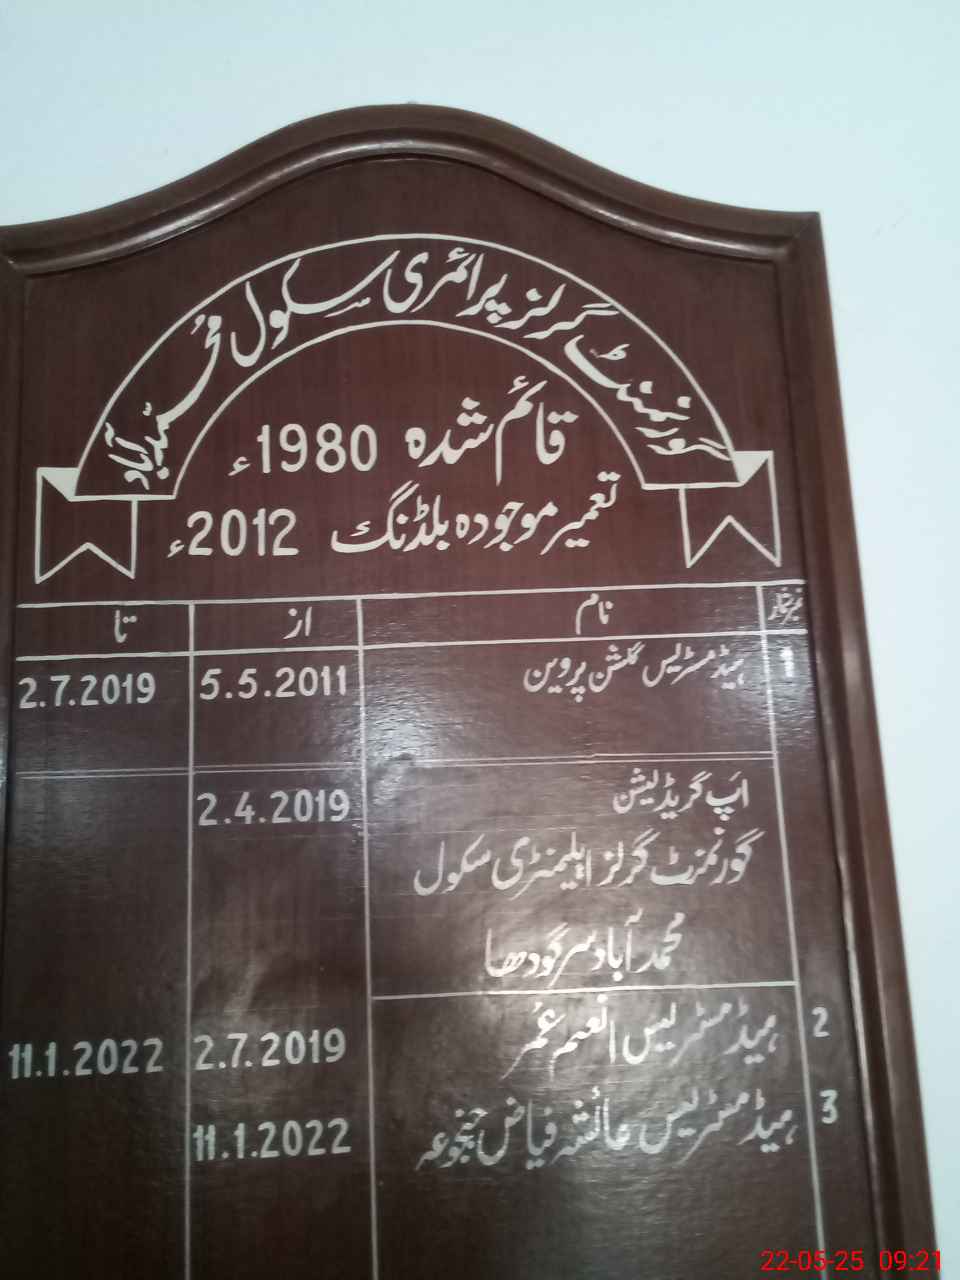 گورنمنٹ گرلز پرائمری سکول محمد آباد
قائم شدہ 1980ء
تعمیر موجودہ بلڈنگ 2012ء
نمبر شمار نام از تا
1 ہیڈ مسٹریس گلشن پروین 5.5.2011 2.7.2019
اپ گریڈیشن 2.4.2019
گورنمنٹ گرلز ایلیمنٹری سکول
محمد آباد سرگودھا
2 ہیڈ مسٹریس انعم عمر 2.7.2019 11.1.2022
3 ہیڈ مسٹریس عائشہ فیاض جنجوعہ 11.1.2022
22-05-25 09:21